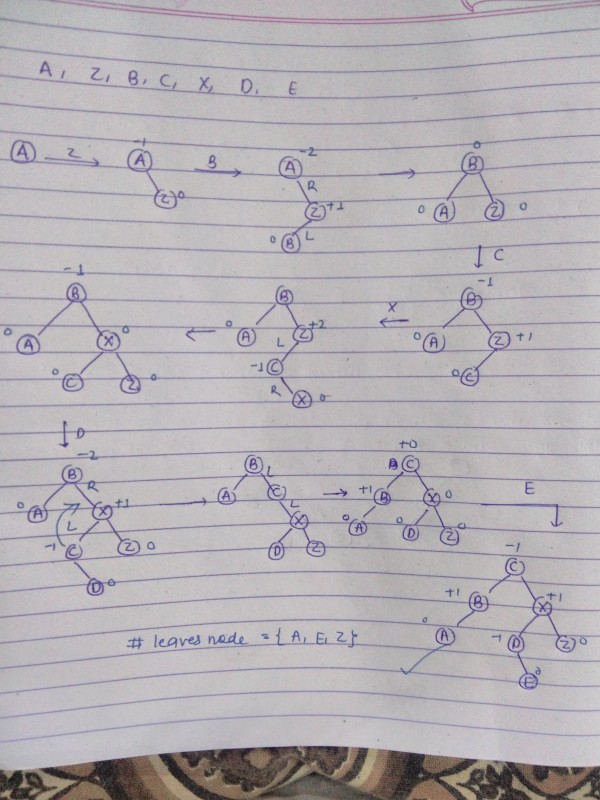 A, Z, B, C, X, D, E
A Z -1 A Z 0 B -2 A R Z +1 B L 0 0 B 0 A Z 0
C
-1 B 0 A X 0 0 C Z 0 B 0 A Z +2 L -1 C R X 0 X -1 B 0 A Z +1 0 C
D
-2 B R 0 A X +1 L -1 C Z 0 D 0 B L A C L X D Z +0 C +1 B X 0 0 A 0 D Z 0 E
-1 C +1 B X +1 0 A -1 D Z 0 E 0
# leaves node = { A, E, Z }